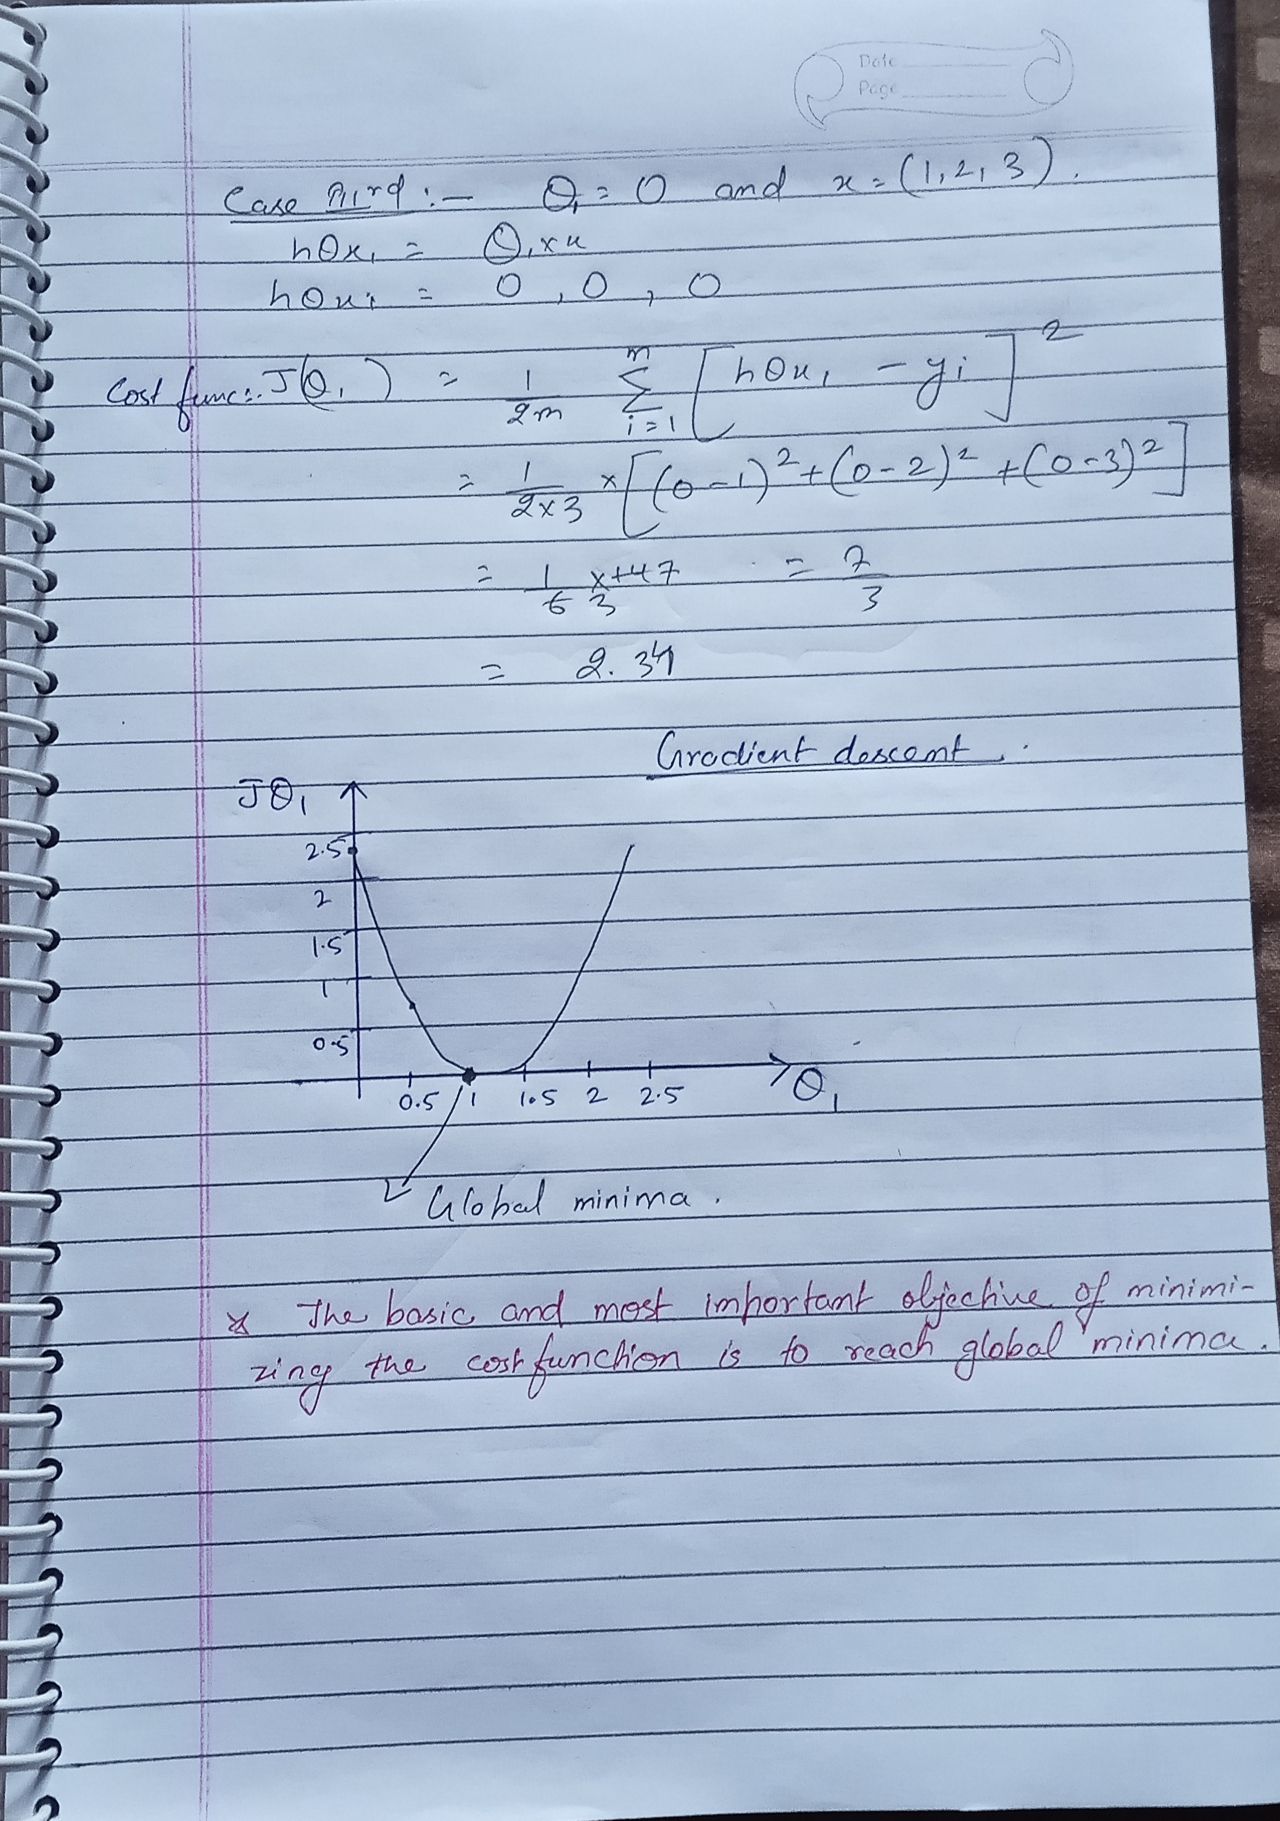 Date
Page
Case third :- θ₁ = 0 and x = (1, 2, 3).
hθx₁ = θ₁ × x
hθxi = 0, 0, 0
Cost func:. J(θ₁) = 1/2m Σ i=1 m [hθx₁ - yi]²
= 1/2×3 × [(0-1)² + (0-2)² + (0-3)²]
= 1/6 3 × 14 7 = 7/3
= 2.34
Gradient descent.
Jθ₁
2.5
2
1.5
1
0.5
0.5 1 1.5 2 2.5 θ₁
Global minima.
* The basic and most important objective of minimi-
zing the cost function is to reach global minima.